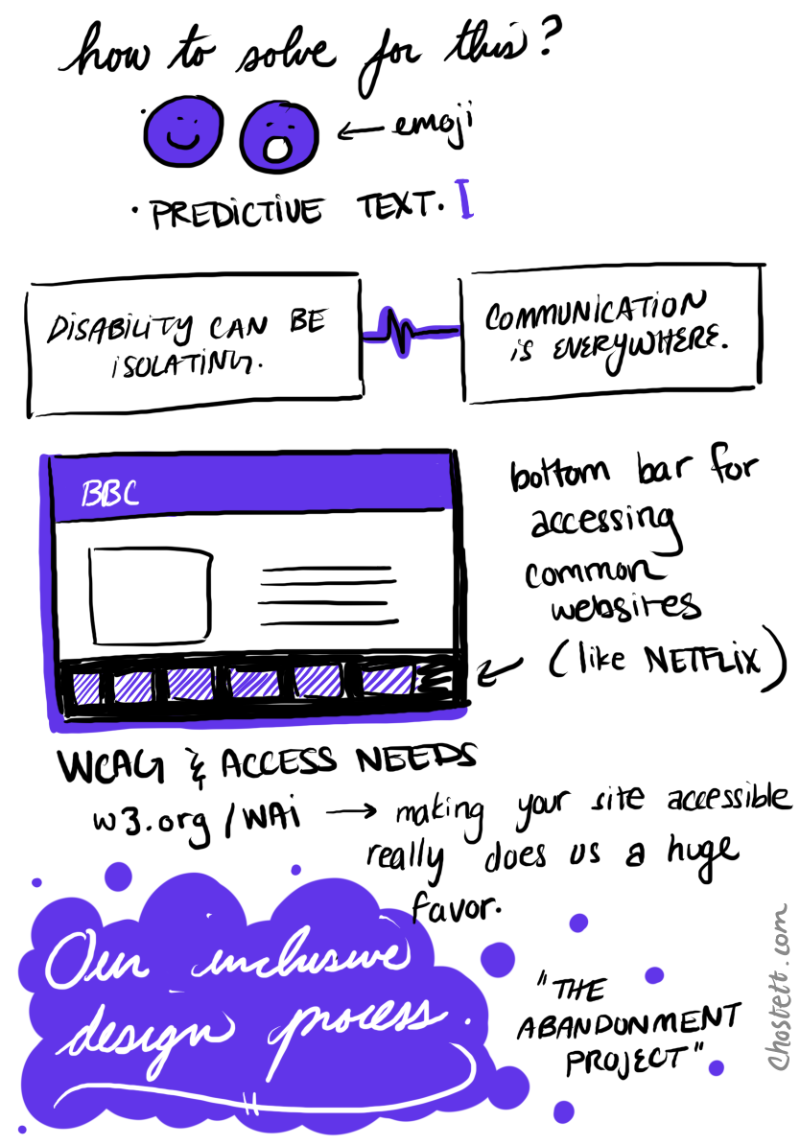 how to solve for this?
← emoji
· PREDICTIVE TEXT.
DISABILITY CAN BE
ISOLATING.
COMMUNICATION
IS EVERYWHERE.
BBC
bottom bar for
accessing
common
websites
(like NETFLIX)
WCAG & ACCESS NEEDS
w3.org/WAi → making your site accessible
really does us a huge
favor.
Our inclusive
design process.
"THE
ABANDONMENT
PROJECT"
chostett.com